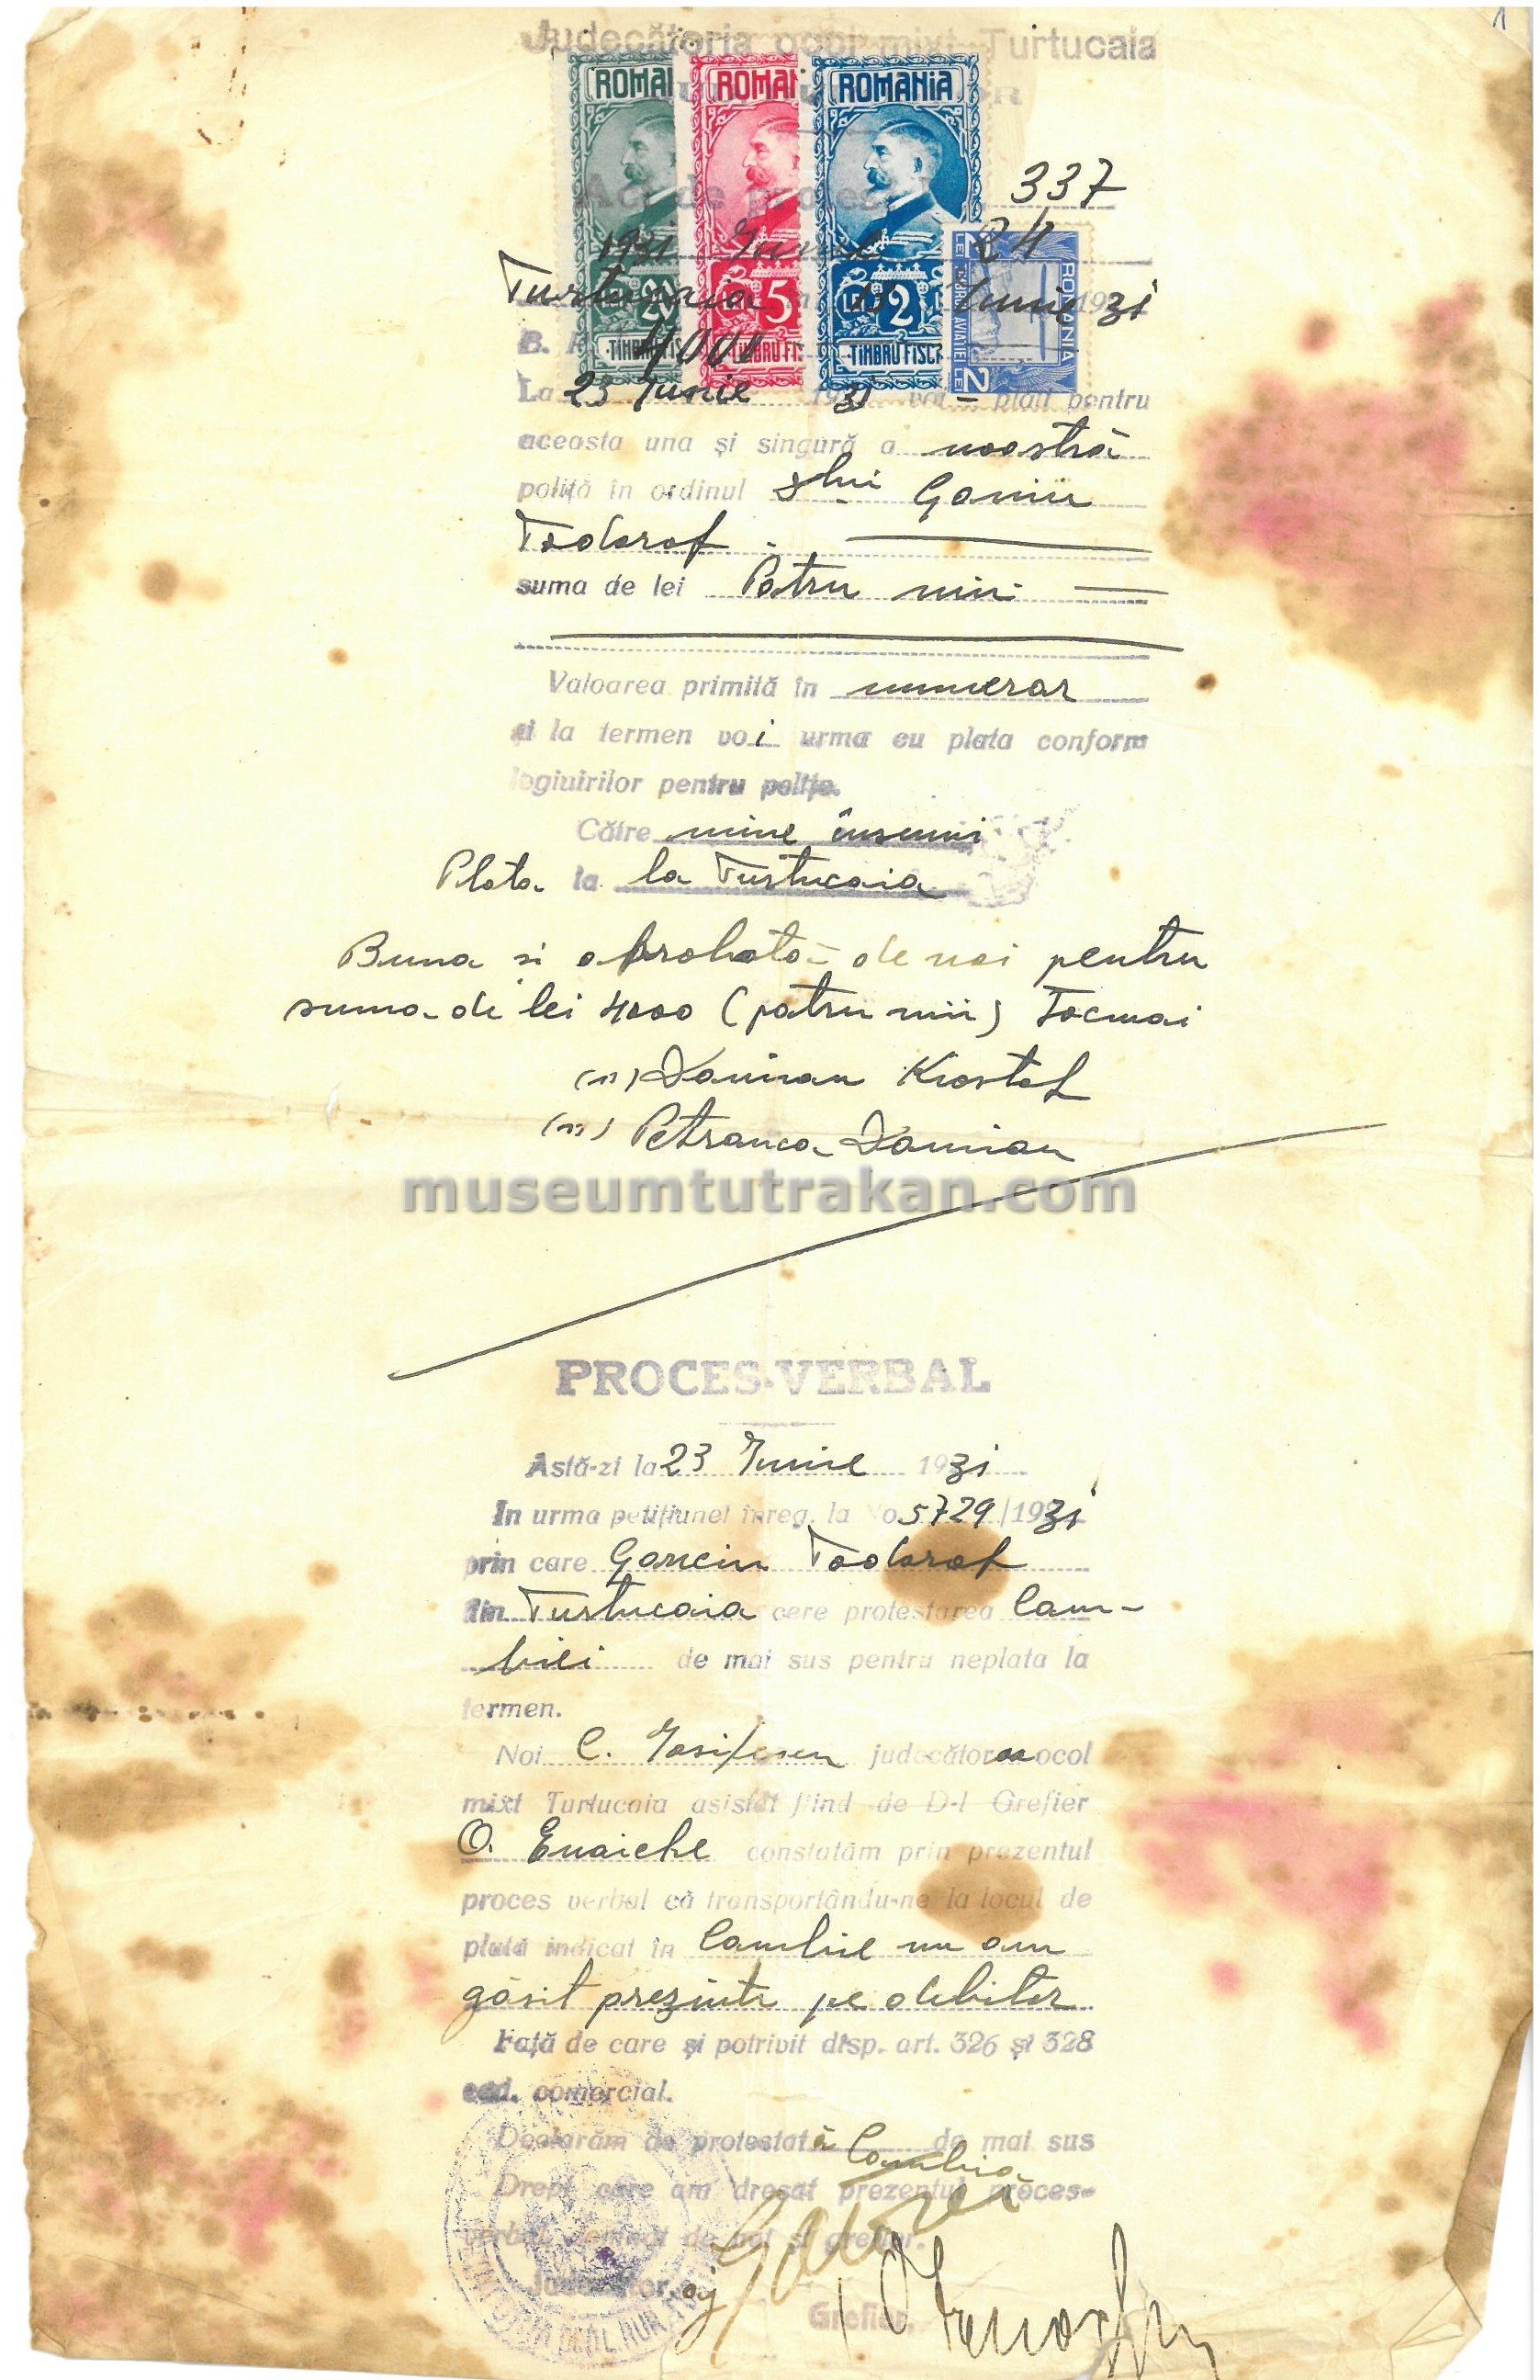 1
Judecătoria ocol mixt Turtucaia
ROMANIA
Act de protest 337
1931 Iunie 24
Turtucaia 15 Iunie 1931
TIMBRU FISCAL 20 5 2
ROMANIA TIMBRUL AVIATIEI 2 LEI 2
B. 4000
La 23 Iunie 1931 voi – plăti pentru
aceasta una și singură a noastră
poliță în ordinul d lui Gonciu
Todorof
suma de lei Patru mii
Valoarea primită în numerar
și la termen voi urma cu plata conform
legiuirilor pentru polițe.
Către mine însumi
Plata la la Turtucaia
Buna si aprobată de noi pentru
suma de lei 4000 (patru mii) Tocmai
(ss) Damian Kostof
(ss) Petranca Damian
museumtutrakan.com
PROCES-VERBAL
Astă-zi la 23 Iunie 1931
In urma petițiunei înreg. la No 5729/1931
prin care Gonciu Todorof
din Turtucaia cere protestarea Cam-
biei de mai sus pentru neplata la
termen.
Noi C. Iosifescu judecător ocol
mixt Turtucaia asistat fiind de D-l Grefier
O. Enache constatăm prin prezentul
proces verbal că transportându-ne la locul de
plată indicat în Cambie nu am
găsit prezinte pe debitor
Față de care și potrivit disp. art. 326 și 328
cod. comercial.
Declarăm de protestată Cambia de mai sus
Drept care am dresat prezentul proces-
verbal semnat de noi și grefier.
Judecător,
Grefier,